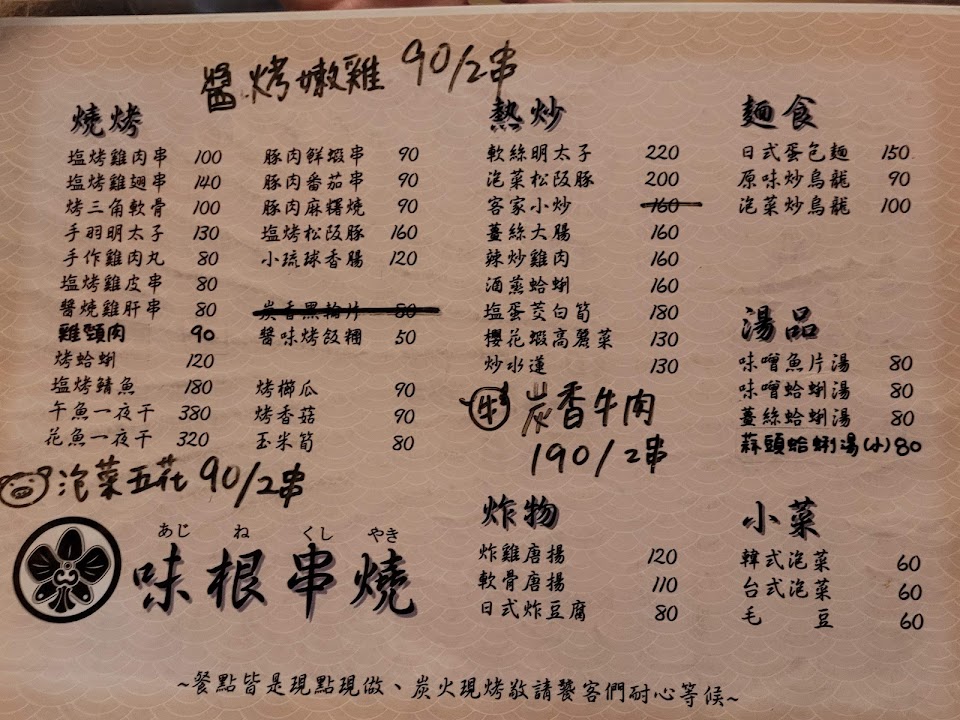 醬烤嫩雞 90/2串
燒烤
塩烤雞肉串 100
塩烤雞翅串 140
烤三角軟骨 100
手羽明太子 130
手作雞肉丸 80
塩烤雞皮串 80
醬燒雞肝串 80
雞頸肉 90
烤蛤蜊 120
塩烤鯖魚 180
午魚一夜干 380
花魚一夜干 320
豚肉鮮蝦串 90
豚肉番茄串 90
豚肉麻糬燒 90
塩烤松阪豚 160
小琉球香腸 120
炭香黑輪片 80
醬味烤飯糰 50
烤櫛瓜 90
烤香菇 90
玉米筍 80
泡菜五花 90/2串
熱炒
軟絲明太子 220
泡菜松阪豚 200
客家小炒 160
薑絲大腸 160
辣炒雞肉 160
酒蒸蛤蜊 160
塩蛋茭白筍 180
櫻花蝦高麗菜 130
炒水蓮 130
牛 炭香牛肉
190/2串
麵食
日式蛋包麵 150
原味炒烏龍 90
泡菜炒烏龍 100
湯品
味噌魚片湯 80
味噌蛤蜊湯 80
薑絲蛤蜊湯 80
蒜頭蛤蜊湯(小) 80
炸物
炸雞唐揚 120
軟骨唐揚 110
日式炸豆腐 80
小菜
韓式泡菜 60
台式泡菜 60
毛豆 60
あじ ね くし やき
味根串燒
~餐點皆是現點現做、炭火現烤敬請饕客們耐心等候~